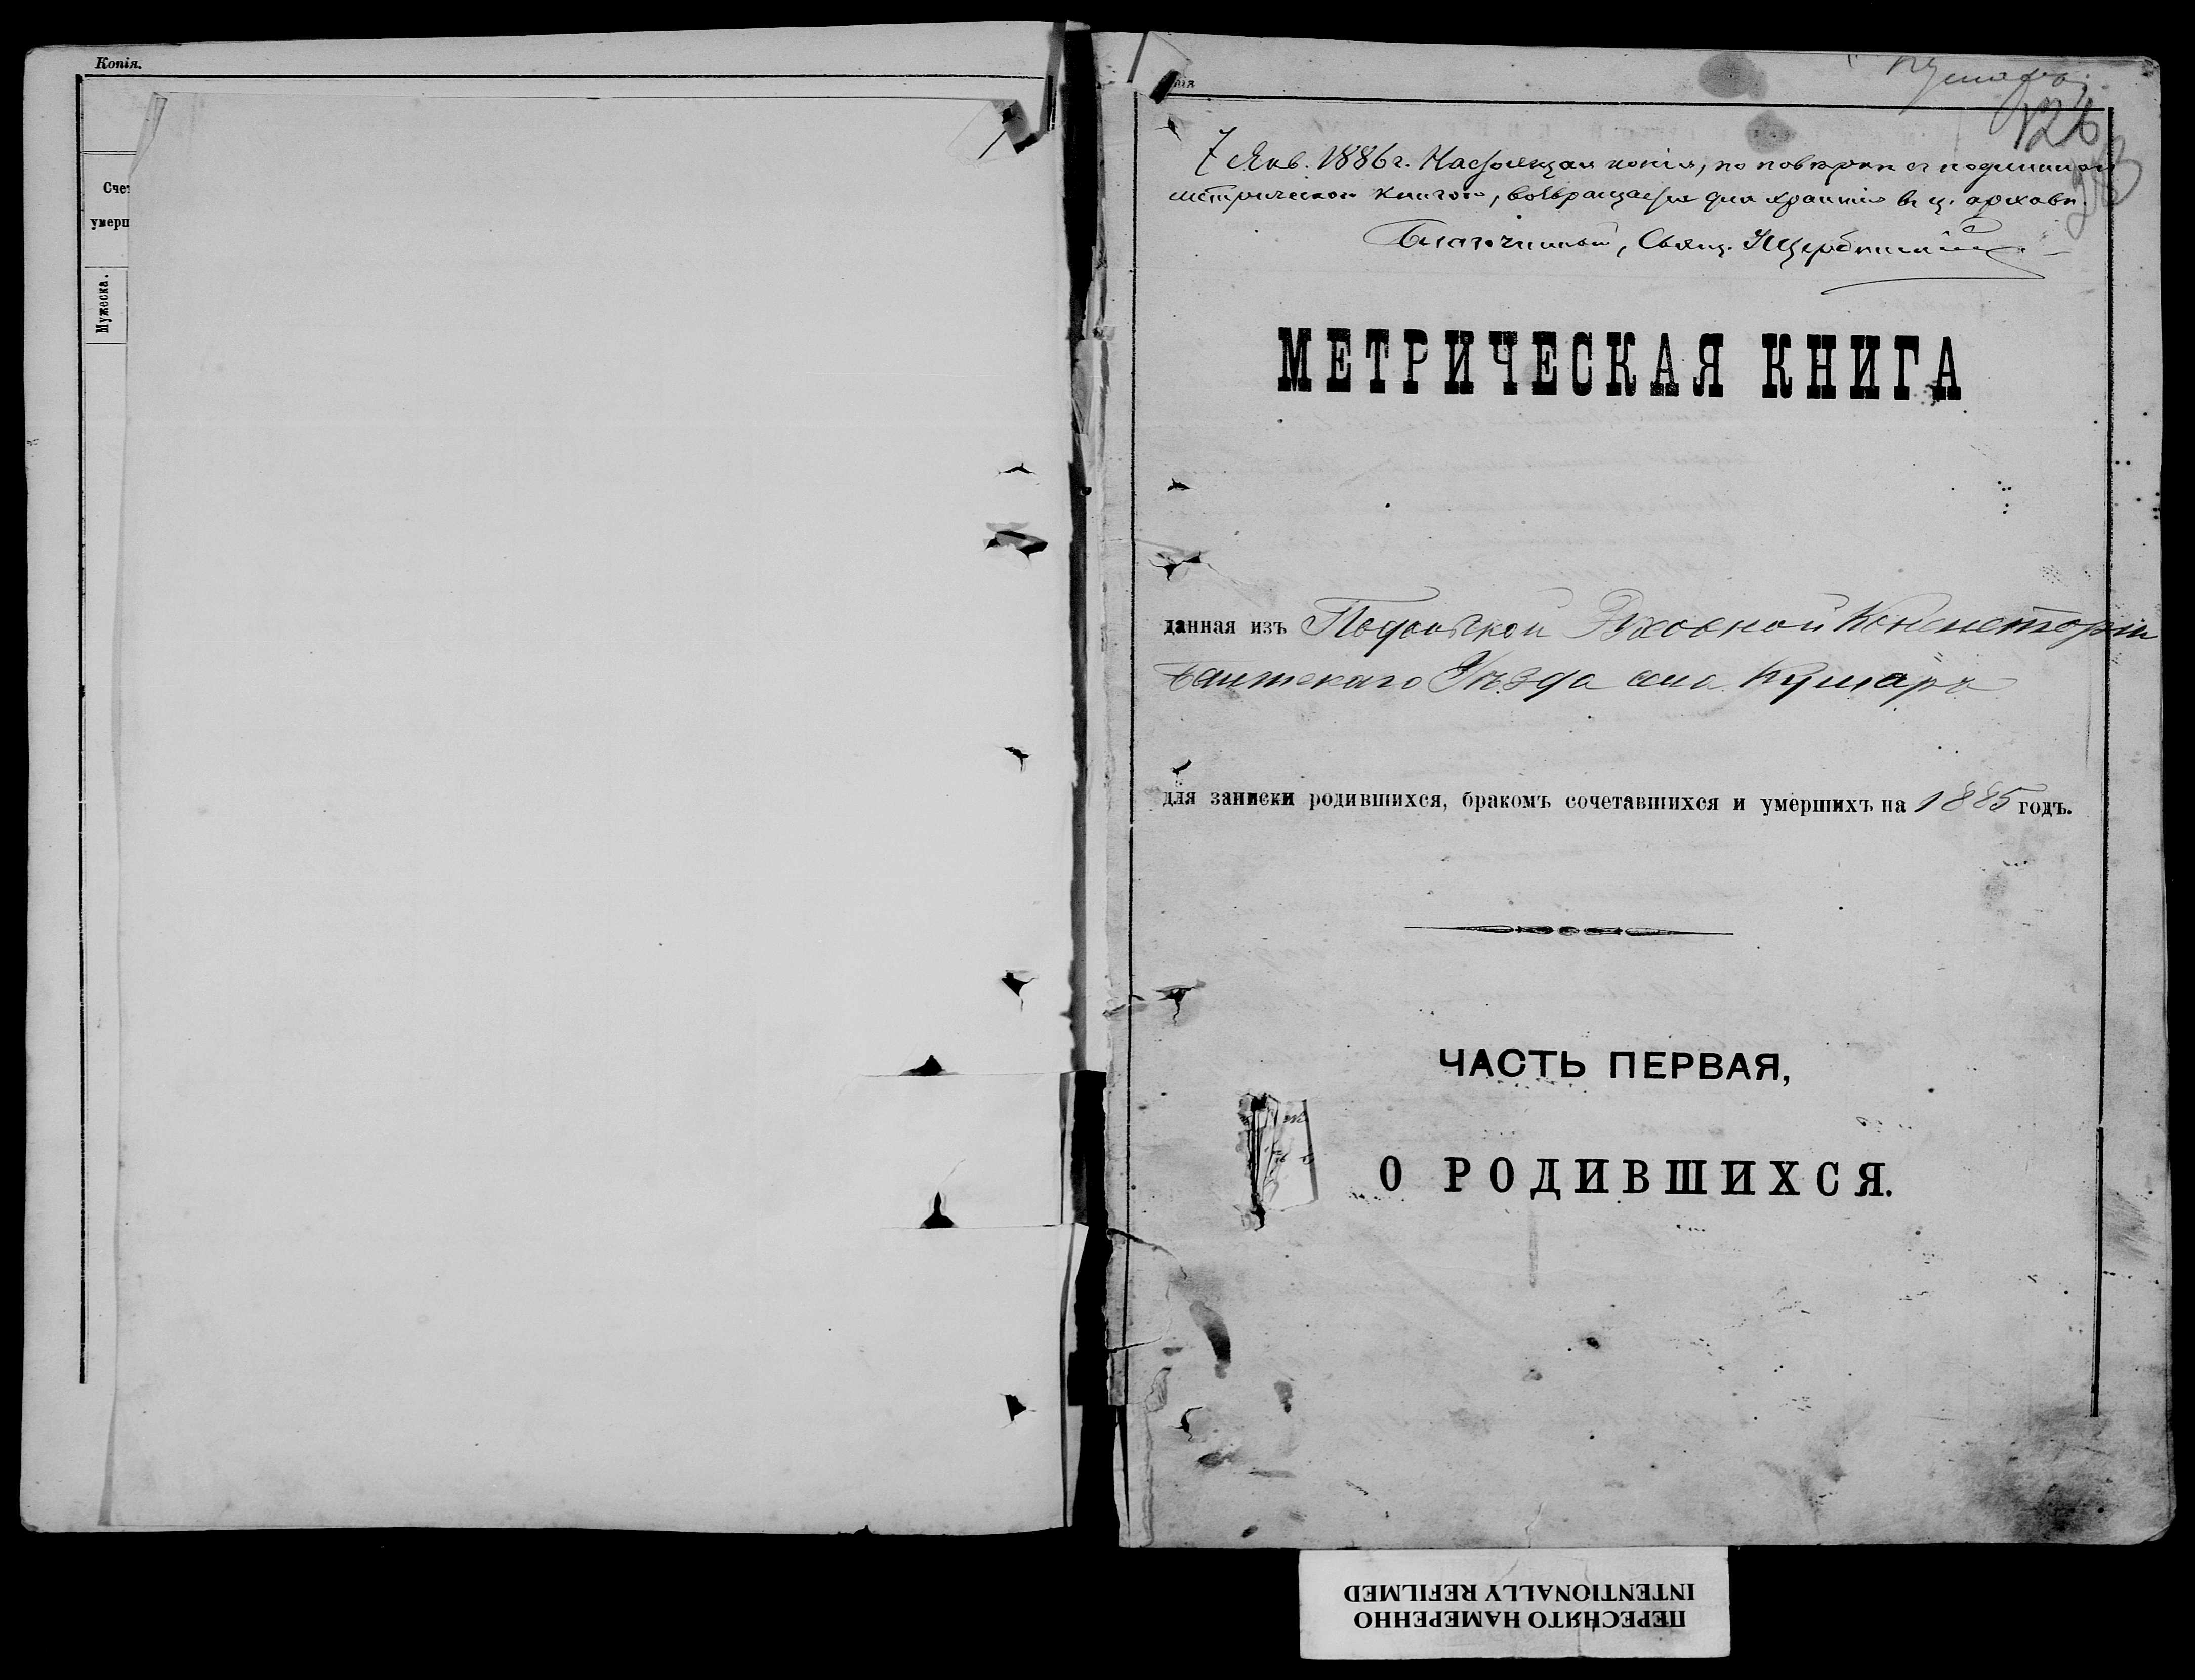 Копія.
Счет
умерш
Мужеска.
Кушаръ
126
7 Янв. 1886 г. Настоящая копія, по повѣркѣ съ подлинною
метрическою книгою, возвращается для храненія въ ц. архивѣ.
Благочинный, Свящ.
МЕТРИЧЕСКАЯ КНИГА
данная изъ Подольской Духовной Консисторіи
Балтскаго Уѣзда села Кушаръ
для записки родившихся, бракомъ сочетавшихся и умершихъ на 1885 годъ.
ЧАСТЬ ПЕРВАЯ,
О РОДИВШИХСЯ.
ПЕРЕСНЯТО НАМЕРЕННО
INTENTIONALLY REFILMED